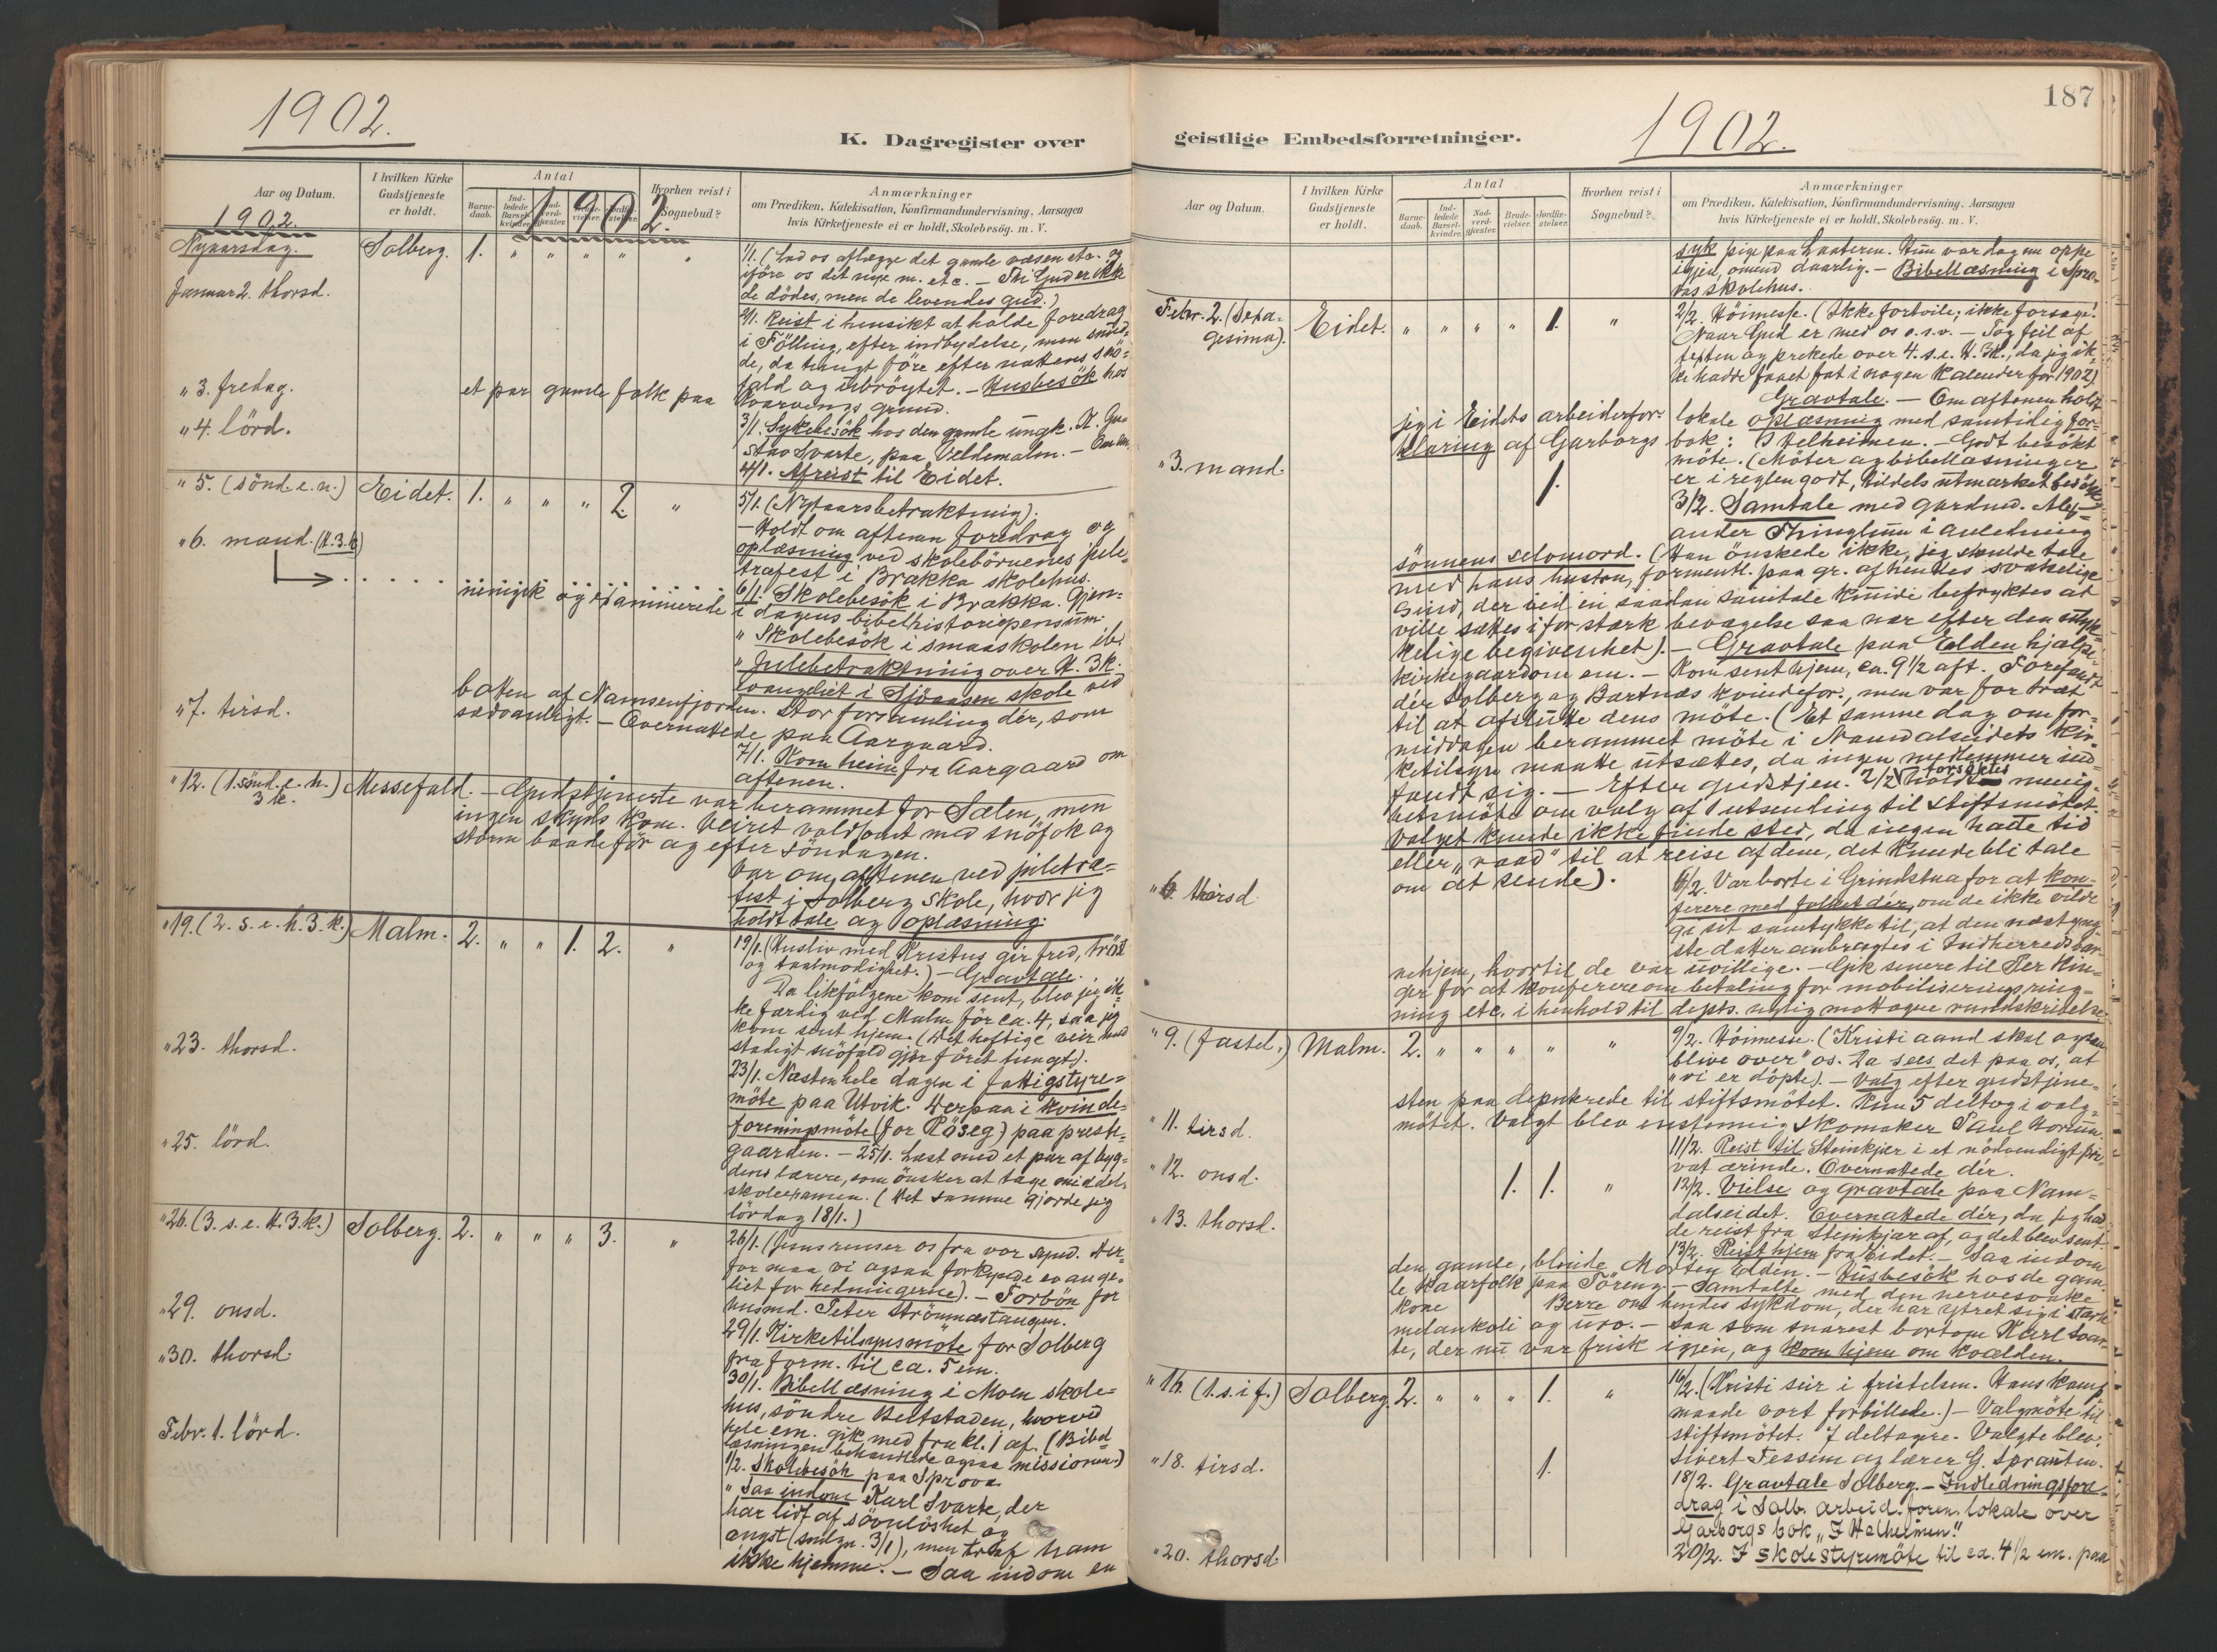 1902.
K. Dagregister over
Aar og Datum.
I hvilken Kirke
Gudstjeneste
er holdt.
Antal
Barne-
daab.
Ind-
ledede
Barsel-
kvinder.
Hvorhen reist i
Sognebud?
Anmærkninger
om Prædiken, Katekisation, Konfirmandundervisning, Aarsagen
hvis Kirketjeneste ei er holdt, Skolebesøg. m. V.
1902.
1902.
Nyaarsdag. Solberg. 1. " " " " "
1/1. (Lad os aflægge det gamle væsen etc. og
iföre os det nye m. etc. — Thi Gud er ikke
de dödes, men de levendes gud.)
Januar 2. thorsd.
2/1. Reist i hensikt at holde foredrag
i Fölling, efter indbydelse, men snud-
de, da tungt före efter nattens snö-
fald og ubröytet. — Husbesök hos
et par gamle folk paa Kvarvings grund.
"3. fredag.
3/1. Sykebesök hos den gamle ungk. N. Gu-
stav Svarte, paa Veldemalm. —
"4. lörd.
4/1. Afreist til Eidet.
"5. (sönd. e. n.) Eidet. 1. " " " 2. "
5/1. (Nytaarsbetraktning).
— Holdt om aftenen foredrag og
oplæsning ved skolebörnenes jule-
træfest i Brakka skolehus.
"6. mand. (H. 3. k)
6/1. Skolebesök i Brakka. Gjen-
nemgik og examinerede i dagens bibelhistoriepensum.
" Skolebesök i smaaskolen ib.
" Julebetraktning over H. 3 k.
evangeliet i Sjöaasen skole ved
botten af Namsenfjorden. Stor forsamling dér, som
sædvanligt. — Overnattede paa Aargaard.
"7. tirsd.
7/1. Kom heim fra Aargaard om
aftenen.
"12. (1. sönd. e. h. 3 k.) Messefald. — Gudstjeneste var berammet for Sælen, men
ingen skyds kom. Veiret voldsomt med snöfok og
storm baade för og efter söndagen.
Var om aftenen ved juletræ-
fest i Solberg skole, hvor jeg
holdt tale og oplæsning.
"19. (2. s. e. h. 3. k.) Malm. 2. " " 1. 2. "
19/1. (Husliv med Kristus gir fred, tröst
og taalmodighet.) — Gravtale.
Da likfölgene kom sent, blev jeg ik-
ke færdig ved Malm för ca. 4, saa jeg
kom sent hjem. (Det heftige veir med
stadigt snöfald gjör föret tungt).
"23. thorsd.
23/1. Næsten hele dagen i fattigstyre-
möte paa Utvik. Derpaa i kvinde-
foreningsmöte (for Röseg) paa preste-
gaarden. — 25/1. Læst med et par af byg-
dens lærere, som önsker at tage middel-
skoleexamen. (Det samme gjorde jeg
lördag 18/1.)
"25. lörd.
"26. (3. s. e. H. 3. k.) Solberg. 2. " " " 3. "
26/1. (Jesus renser os fra vor synd. Der-
for maa vi ogsaa forkynde evange-
liet for hedningerne). — Forbön for
husmd. Peter Strömnæstangen.
"29. onsd.
29/1. Kirketilsynsmöte for Solberg
fra form. til ca. 5 em.
"30. thorsd.
30/1. Bibellæsning i Moen skole-
hus, söndre Beitstaden, hvorved
hele em. gik med fra kl. 1 af. (Bibel-
læsningen behandlede ogsaa missionen.)
Febr. 1. lörd.
1/2. Skolebesök paa Sprova.
" Saa indom Karl Svarte, der
har lidt af sövnlöshet og
angst (smlgn. 3/1), men traf ham
ikke hjemme. — Saa indom en
187
1902.
geistlige Embedsforretninger.
Aar og Datum.
I hvilken Kirke
Gudstjeneste
er holdt.
Antal
Barne-
daab.
Ind-
ledede
Barsel-
kvinder.
Nad-
verd-
gjæster.
Brude-
vielser.
Jordfæ-
stelser.
Hvorhen reist i
Sognebud?
Anmærkninger
om Prædiken, Katekisation, Konfirmandundervisning, Aarsagen
hvis Kirketjeneste ei er holdt, Skolebesøg. m. V.
syk pige paa Laateren. Hun var dog nu oppe
igjen, omend daarlig. — Bibellæsning i Spro-
vas skolehus.
Febr. 2. (Sexa-
gesima). Eidet. " " " " 1. "
2/2. Höimesse. (Ikke fortvile; ikke forsage!
Naar Gud er med os o. s. v. — Tog feil af
texten og prekede over 4. s. e. H. 3K., da jeg ik-
ke hadde faaet fat i nogen kalender for 1902).
Gravtale. — Om aftenen holdt
jeg i Eidets arbeiderfor. lokale oplæsning med samtidig for-
klaring af Garborgs bok: I Helheimen. — Godt besökt
möte. (Möter og bibellæsninger
er i reglen godt, tildels utmærket besökt)
"3. mand. 1.
3/2. Samtale med gardmd. Alex-
ander Thinglum i anledning
sönnens selvmord. (Han önskede ikke, jeg skulde tale
med hans hustru, formentl. paa gr. af hendes svakelige
sind, der ved en saadan samtale kunde befryktes at
ville sættes i for stærk bevægelse saa nær efter den ulyk-
kelige begivenhet). — Gravtale paa Elden hjælpe-
kirkegaard om em. — Kom sent hjem, ca. 9 1/2 aft. Forefandt
dér Solberg og Bartnæs kvindefor., men var for træt
til at afslutte dens möte. (Et samme dag om for-
middagen berammet möte i Namdalseidets kir-
ketilsyn maatte utsættes, da ingen medlemmer ind-
fandt sig. — Efter gudstjen. 2/2 forsöktes menig-
hetsmöte om valg af 1 utsending til stiftsmötet.
Valget kunde ikke finde sted, da ingen hatte tid
eller "raad" til at reise af dem, det kunde bli tale
om at sende).
"6. thorsd.
6/2. Var borte i Grindstua for at kon-
ferere med folket dér, om de ikke vilde
gi sit samtykke til, at den næstyng-
ste datter anbragtes i Indherreds bar-
nehjem, hvortil de var uvillige. — Gik senere til Per Hin-
ger for at konferere om betaling for mobiliserings ring-
ning etc. i henhold til depts. nylig mottagne rundskrivelse.
"9. (fastel.) Malm. 2. " " " " "
9/2. Höimesse. (Kristi aand skal ogsaa
"blive over" os. Da sees det paa os, at
"vi er döpte). — Valg efter gudstjene-
sten paa deputerede til stiftsmötet. Kun 5 deltog i valg-
mötet. Valgt blev enstemmig skomaker Paul
"11. tirsd.
11/2. Reist til Steinkjær i et nödvendigt pri-
vat ærinde. Overnattede dér.
"12. onsd. 1. 1. "
12/2. Vielse og gravtale paa Nam-
dalseidet. Overnattede dér, da jeg had-
de reist fra Steinkjær af, og det blev sent.
"13. thorsd.
13/2. Reist hjem fra Eidet. — Saa indom
den gamle, blinde Morten Elden. — Husbesök hos de gam-
le kaarfolk paa Föreng. — Samtalte med den nervesvake
kone Berre om hendes sykdom, der har ytret sig i stærk
melankoli og uro. — Saa som snarest bortom Karl Svar-
te, der nu var frisk igjen, og kom hjem om kvælden.
"16. (1. s. i f.) Solberg. 2. " " " 1. "
16/2. (Kristi seir i fristelsen. Hans kamp-
maade vort forbillede.) — Valgmöte til
stiftsmötet. 7 deltagere. Valgte blev:
Sivert Fessem og lærer G. Sprauten.
"18. tirsd. 1.
18/2. Gravtale Solberg. — Indledningsfore-
drag i Solb. arbeid. foren. lokale over
Garborgs bok "I Helheimen."
"20. thorsd.
20/2. I skolestyremöte til ca. 4 1/2 em. paa